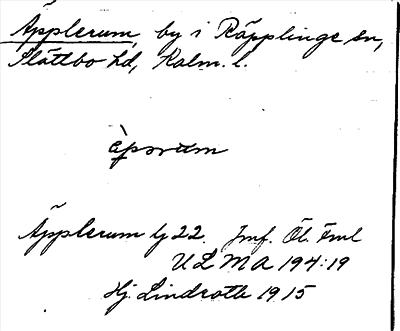 Äpplerum, by i Räpplinge sn,
Slättbo hd, Kalm. l.
äpərum
Äpplerum lj 22. Jmf. Öl. Fml
ULMA 194:19
Hj. Lindroth 1915